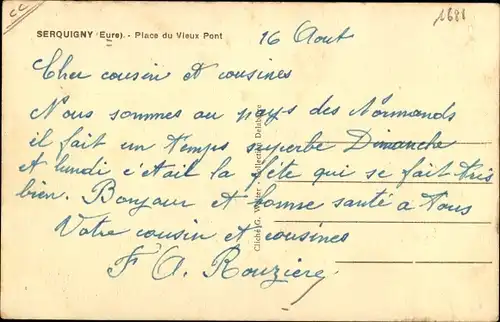 CC
1681
SERQUIGNY (Eure). - Place du Vieux Pont
16 Aout
Cher cousin et cousines
Nous sommes au pays des Normands
il fait un temps superbe Dimanche
et lundi c'était la fête qui se fait très
bien. Bonjour et bonne santé à tous
Votre cousin et cousines
F A. Rouzière
Cliché G. Walter - Collection Delaborde